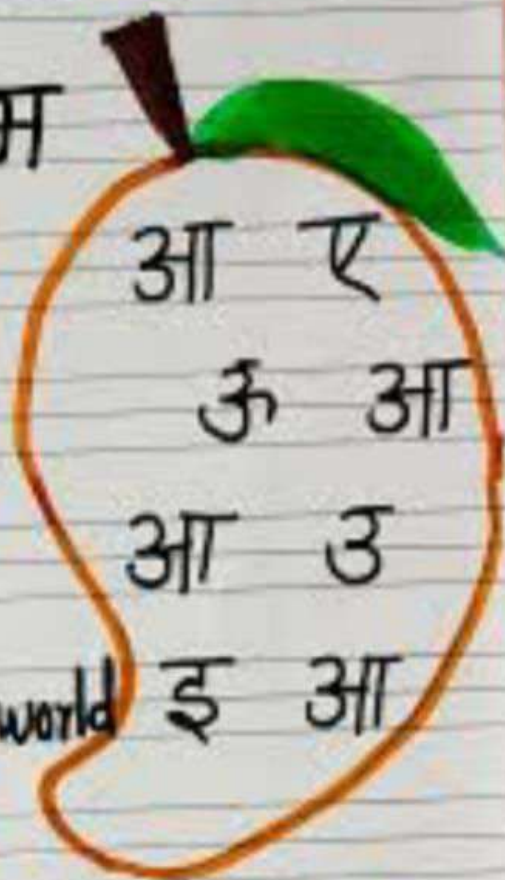 म
आ ए
ऊ आ
आ उ
world इ आ